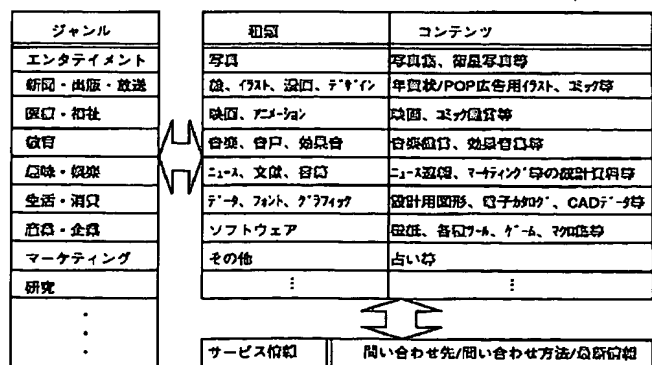 ジャンル
エンタテイメント
新聞・出版・放送
医療・福祉
教育
趣味・娯楽
生活・消費
産業・企業
マーケティング
研究
種類 コンテンツ
写真 写真集、衛星写真等
絵、イラスト、漫画、デザイン 年賀状/POP広告用イラスト、コミック等
映画、アニメーション 映画、コミック
音楽、音声、効果音 音楽配信、効果音等
ニュース、文献、書籍 ニュース速報、マーケティング等の統計資料等
データ、フォント、グラフィック 設計用図形、電子カタログ、CADデータ等
ソフトウェア 各種ツール、ゲーム、マクロ
その他 占い等
サービス情報 問い合わせ先/問い合わせ方法/最新情報